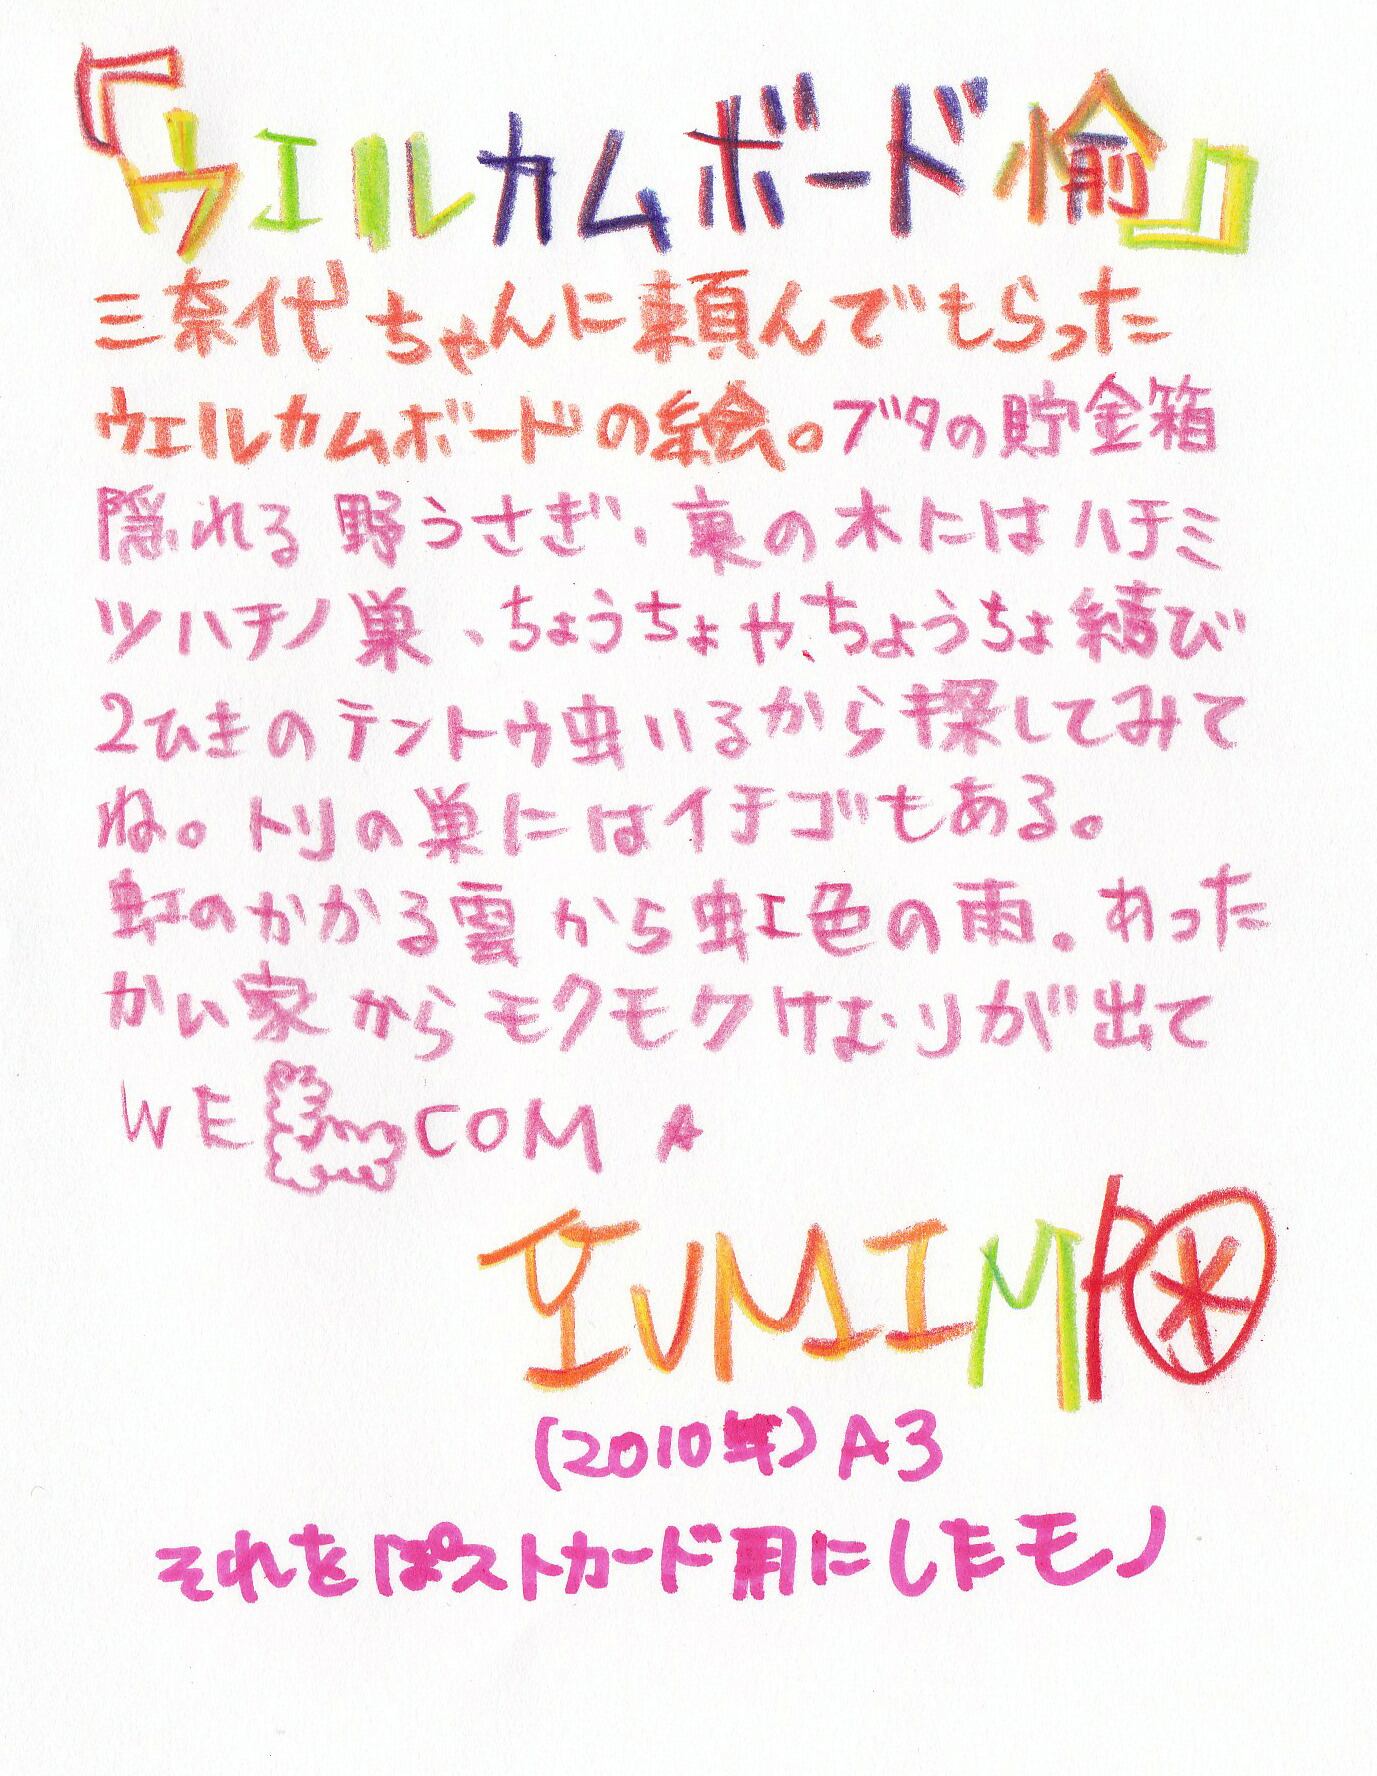 『ウエルカムボード愉』
三奈代ちゃんに頼んでもらった
ウェルカムボードの絵。ブタの貯金箱
隠れる野うさぎ、裏の木にはハチミ
ツハチノ巣、ちょうちょや、ちょうちょ結び
2ひきのテントウ虫いるから探してみて
ね。トリの巣にはイチゴもある。
虹のかかる雲から虹色の雨。あった
かい家からモクモクけむりが出て
WE COM
YUMIM
(2010年)A3
それをぽストカード用にしたモノ